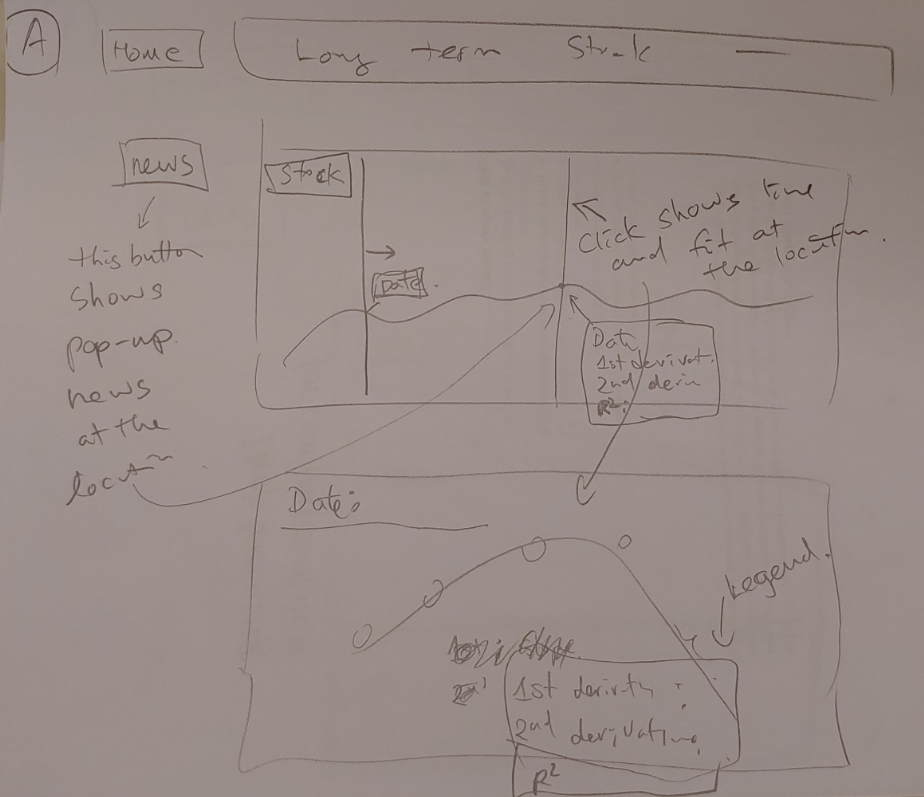 A
Home
Long term Stock
news
this button
shows
pop-up
news
at the
Stock
Date
Click shows line
and fit at
the location.
Date
1st derivat.
2nd deriv
R²:
Date:
Legend.
1st derivativ :
2nd derivative,
R²